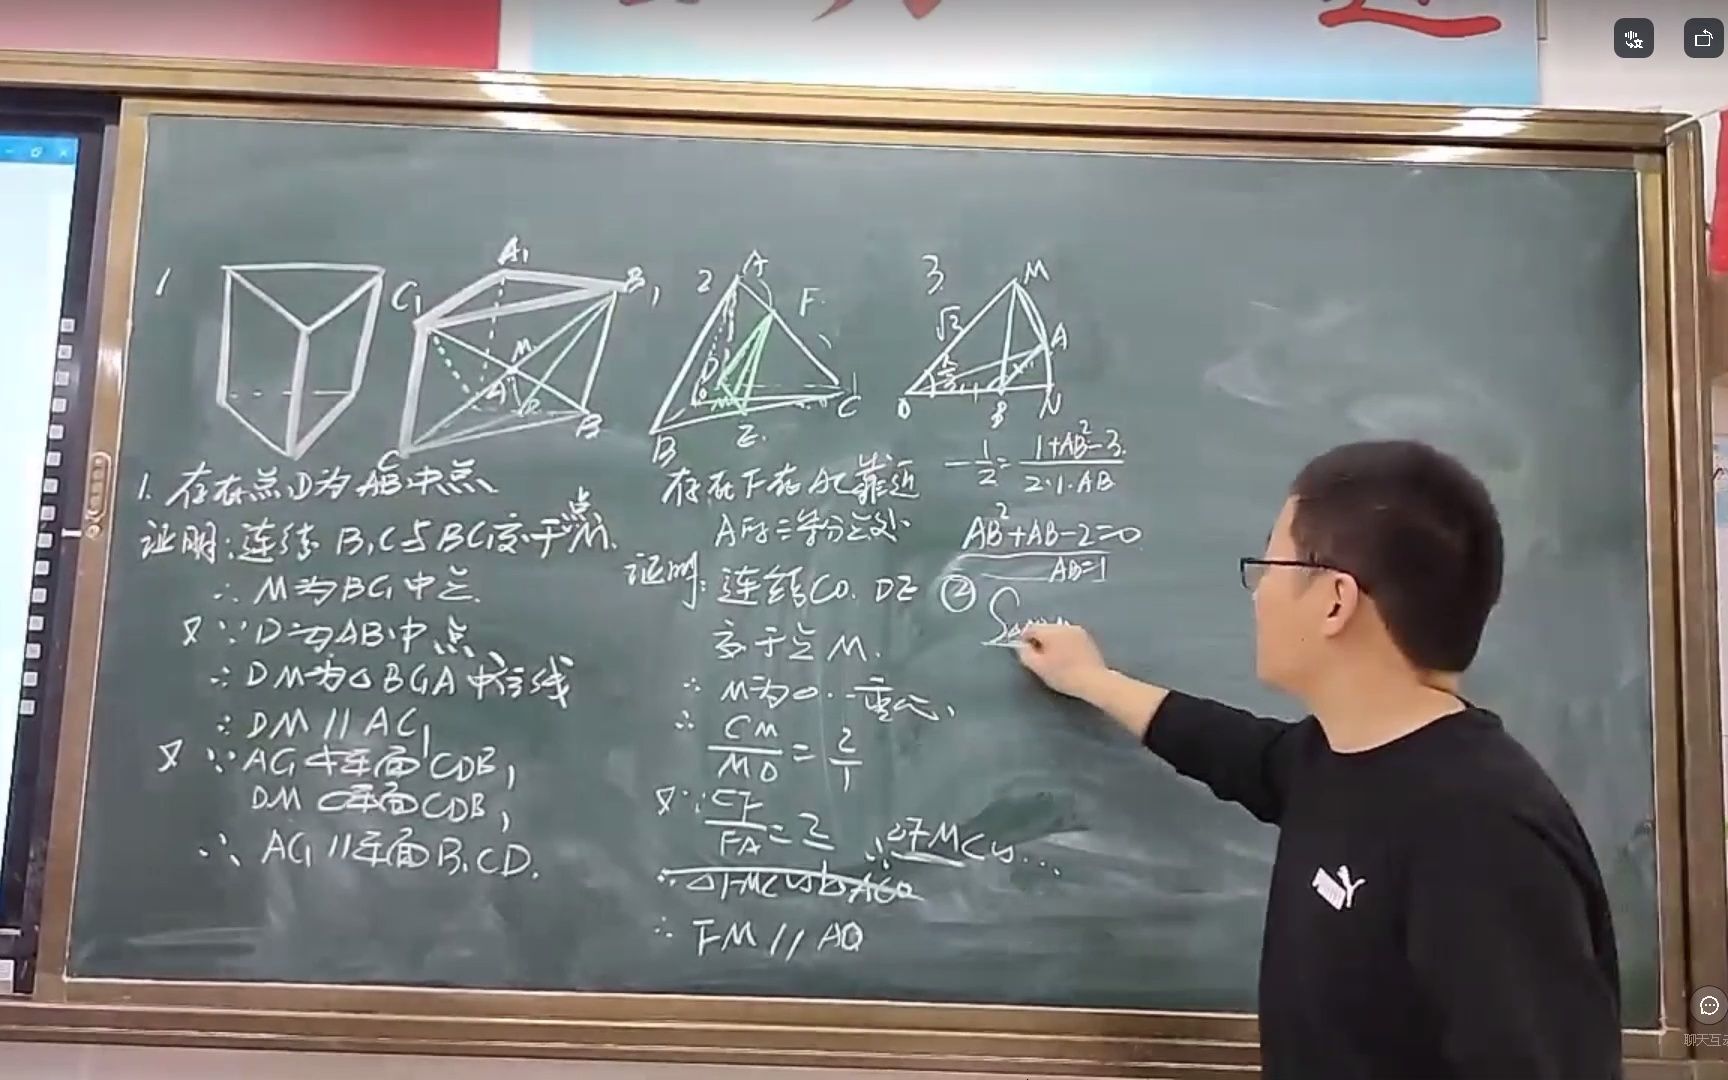 1
A₁
B₁
C₁
M
D
B
C
1. 存在点D为AB中点
证明:连结B₁C与BC₁交于点M.
∴ M为BC₁中点
又∵D为AB中点
∴DM为△BC₁A中位线
∴DM∥AC₁
又∵AC₁⊄平面CDB₁
DM⊂平面CDB₁
∴AC₁∥平面B₁CD.
2
A
F
D
O
M
B
E
C
存在F在AC靠近
A的三等分点处
证明:连结CO.DE
交于点M.
∴M为△..重心,
∴CM/MO=2/1
又∵CF/FA=2
∴△FMC∽...
∴FM∥AO
3.
M
√3
A
O
B
N
-1/2=(1+AB²-3)/(2·1·AB)
AB²+AB-2=0
AB=1
②
S
聊天互